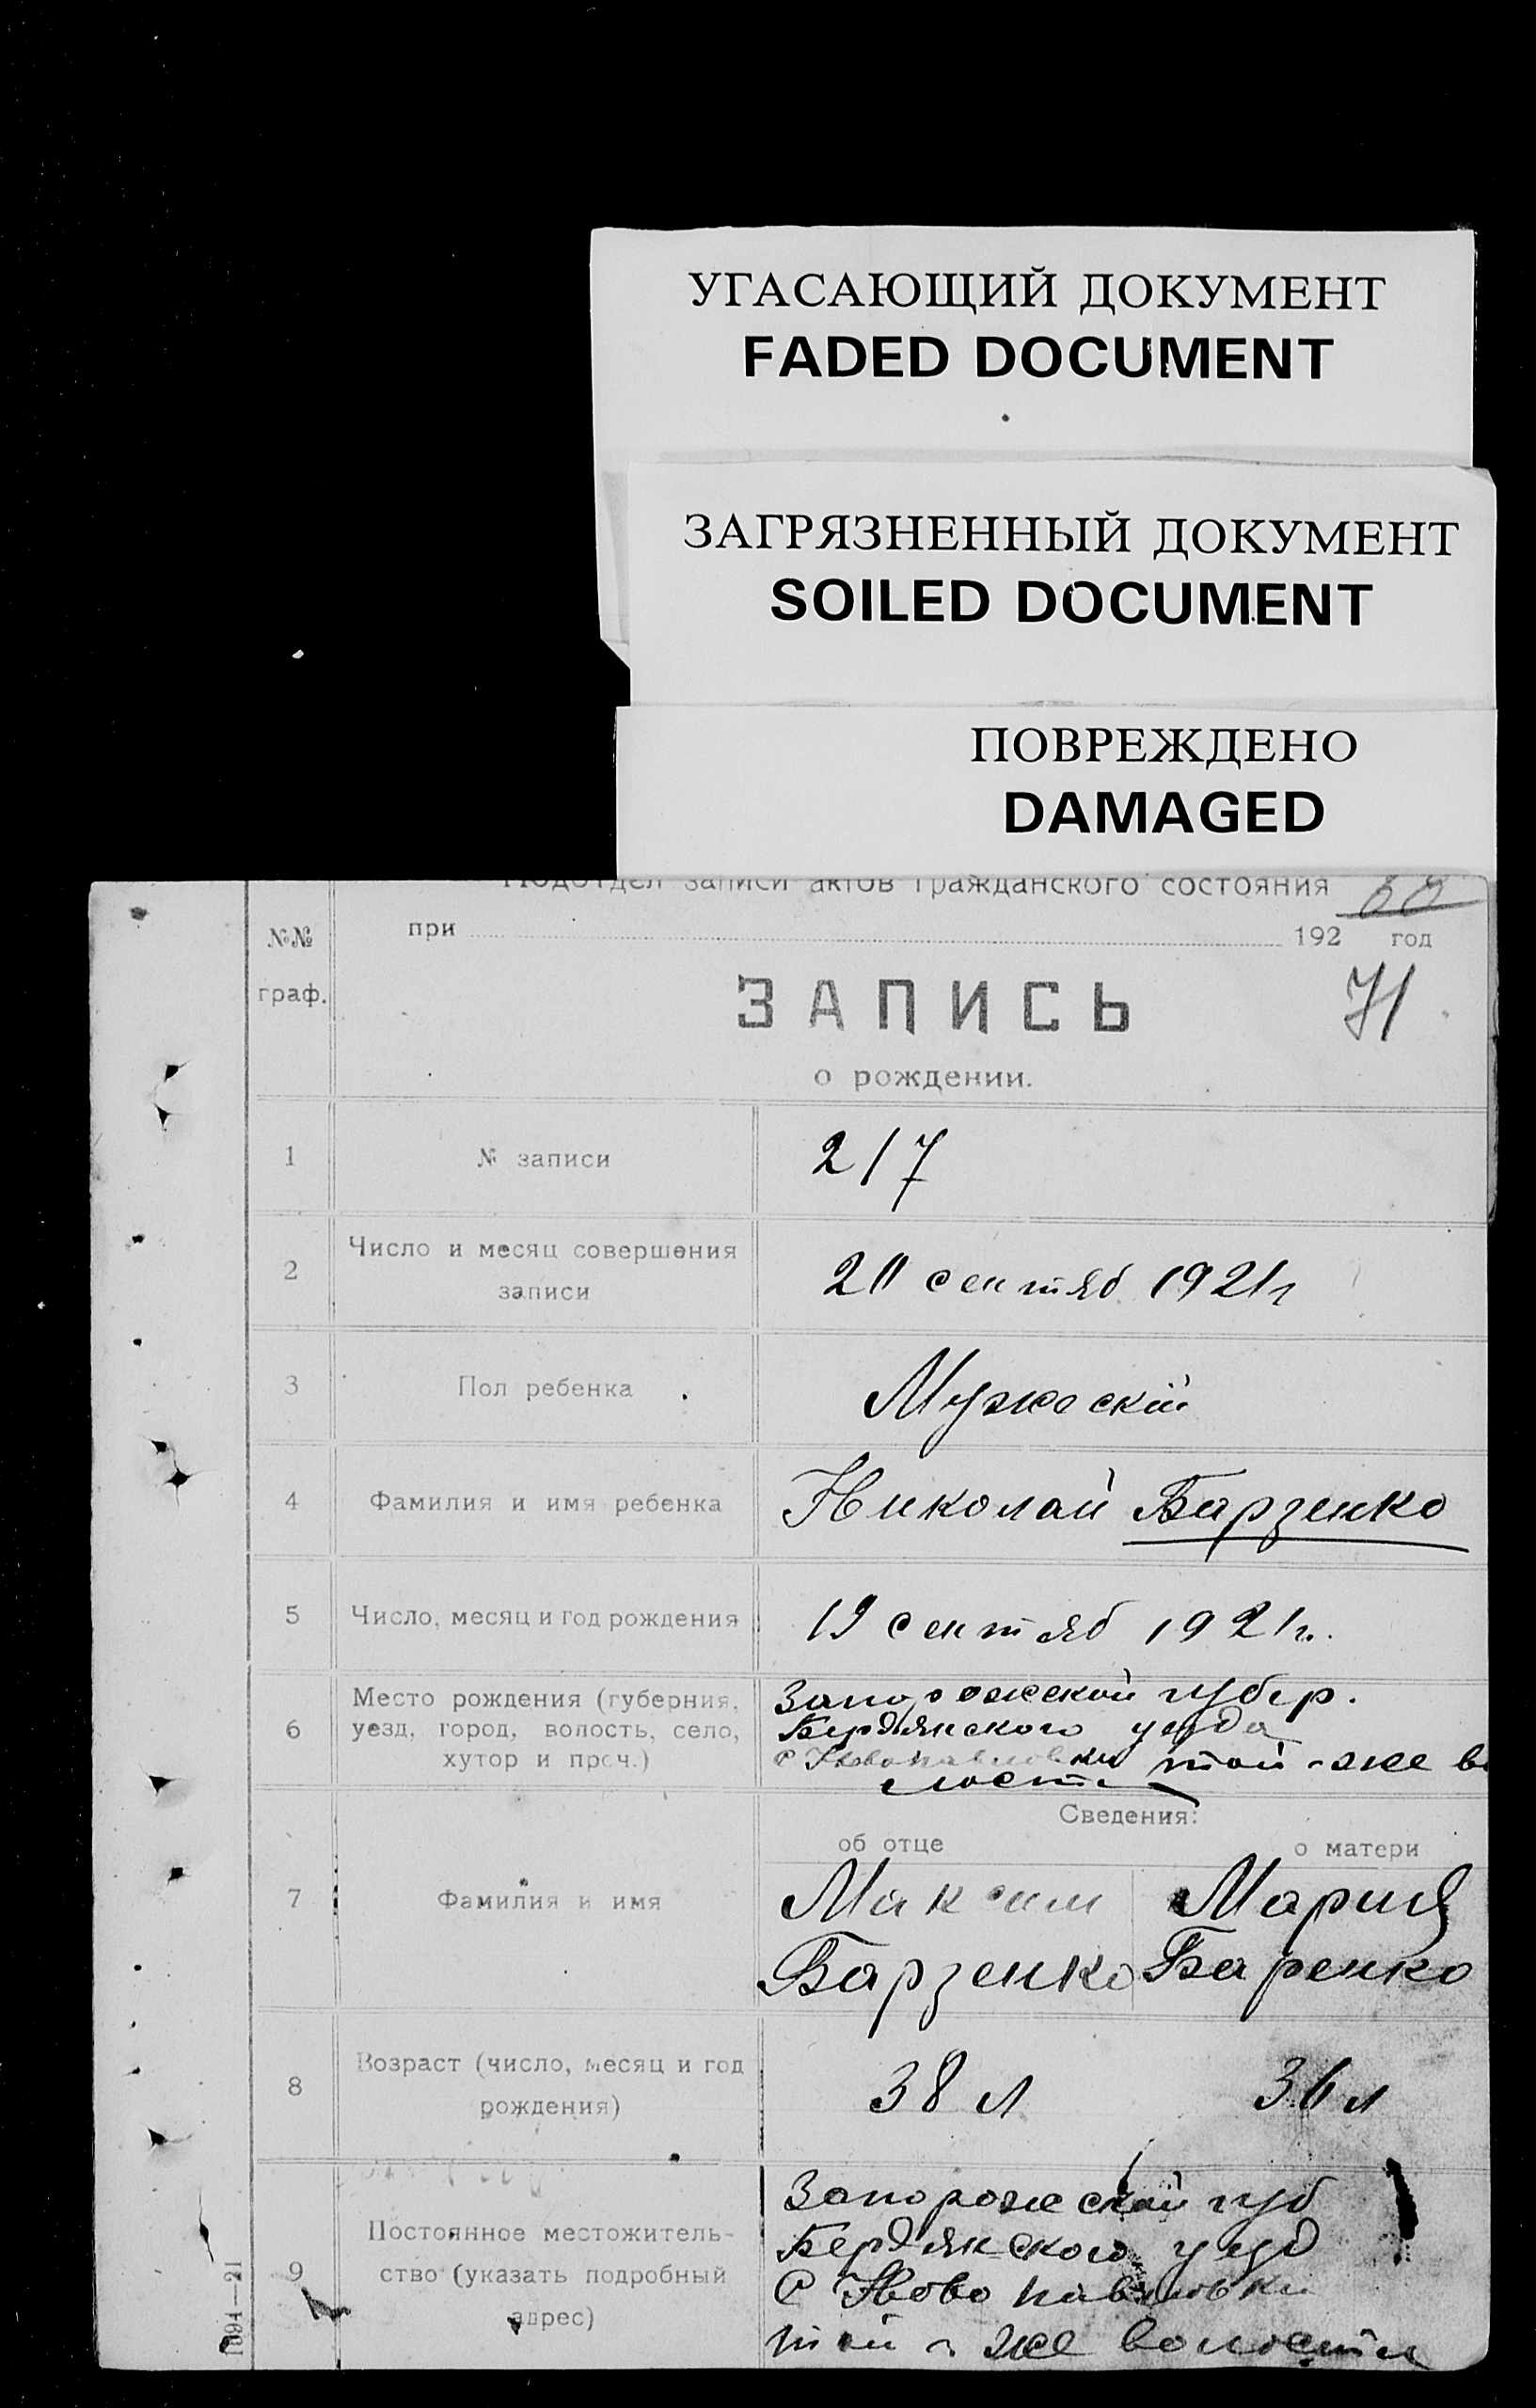 УГАСАЮЩИЙ ДОКУМЕНТ
FADED DOCUMENT
ЗАГРЯЗНЕННЫЙ ДОКУМЕНТ
SOILED DOCUMENT
ПОВРЕЖДЕНО
DAMAGED
Подотдел записи актов гражданского состояния
№№ граф.
при 192 год
ЗАПИСЬ 71
о рождении.
1 № записи 217
2 Число и месяц совершения
записи
20 сентяб 1921г
3 Пол ребенка Мужескій
4 Фамилия и имя ребенка Николай Барзенко
5 Число, месяц и год рождения 19 сентяб 1921г.
6 Место рождения (губерния,
уезд, город, волость, село,
хутор и проч.)
Запорожской губер.
Бердянского уезда
с Новопавловки той-же во
лости
Сведения:
об отце о матери
7 Фамилия и имя
Максим Мария
Барзенко Баренко
8 Возраст (число, месяц и год
рождения)
38 л 36 л
9 Постоянное местожитель-
ство (указать подробный
адрес)
Запорожской губ
Бердянского уезд
с Ново павловки
той-же волости
1094—21